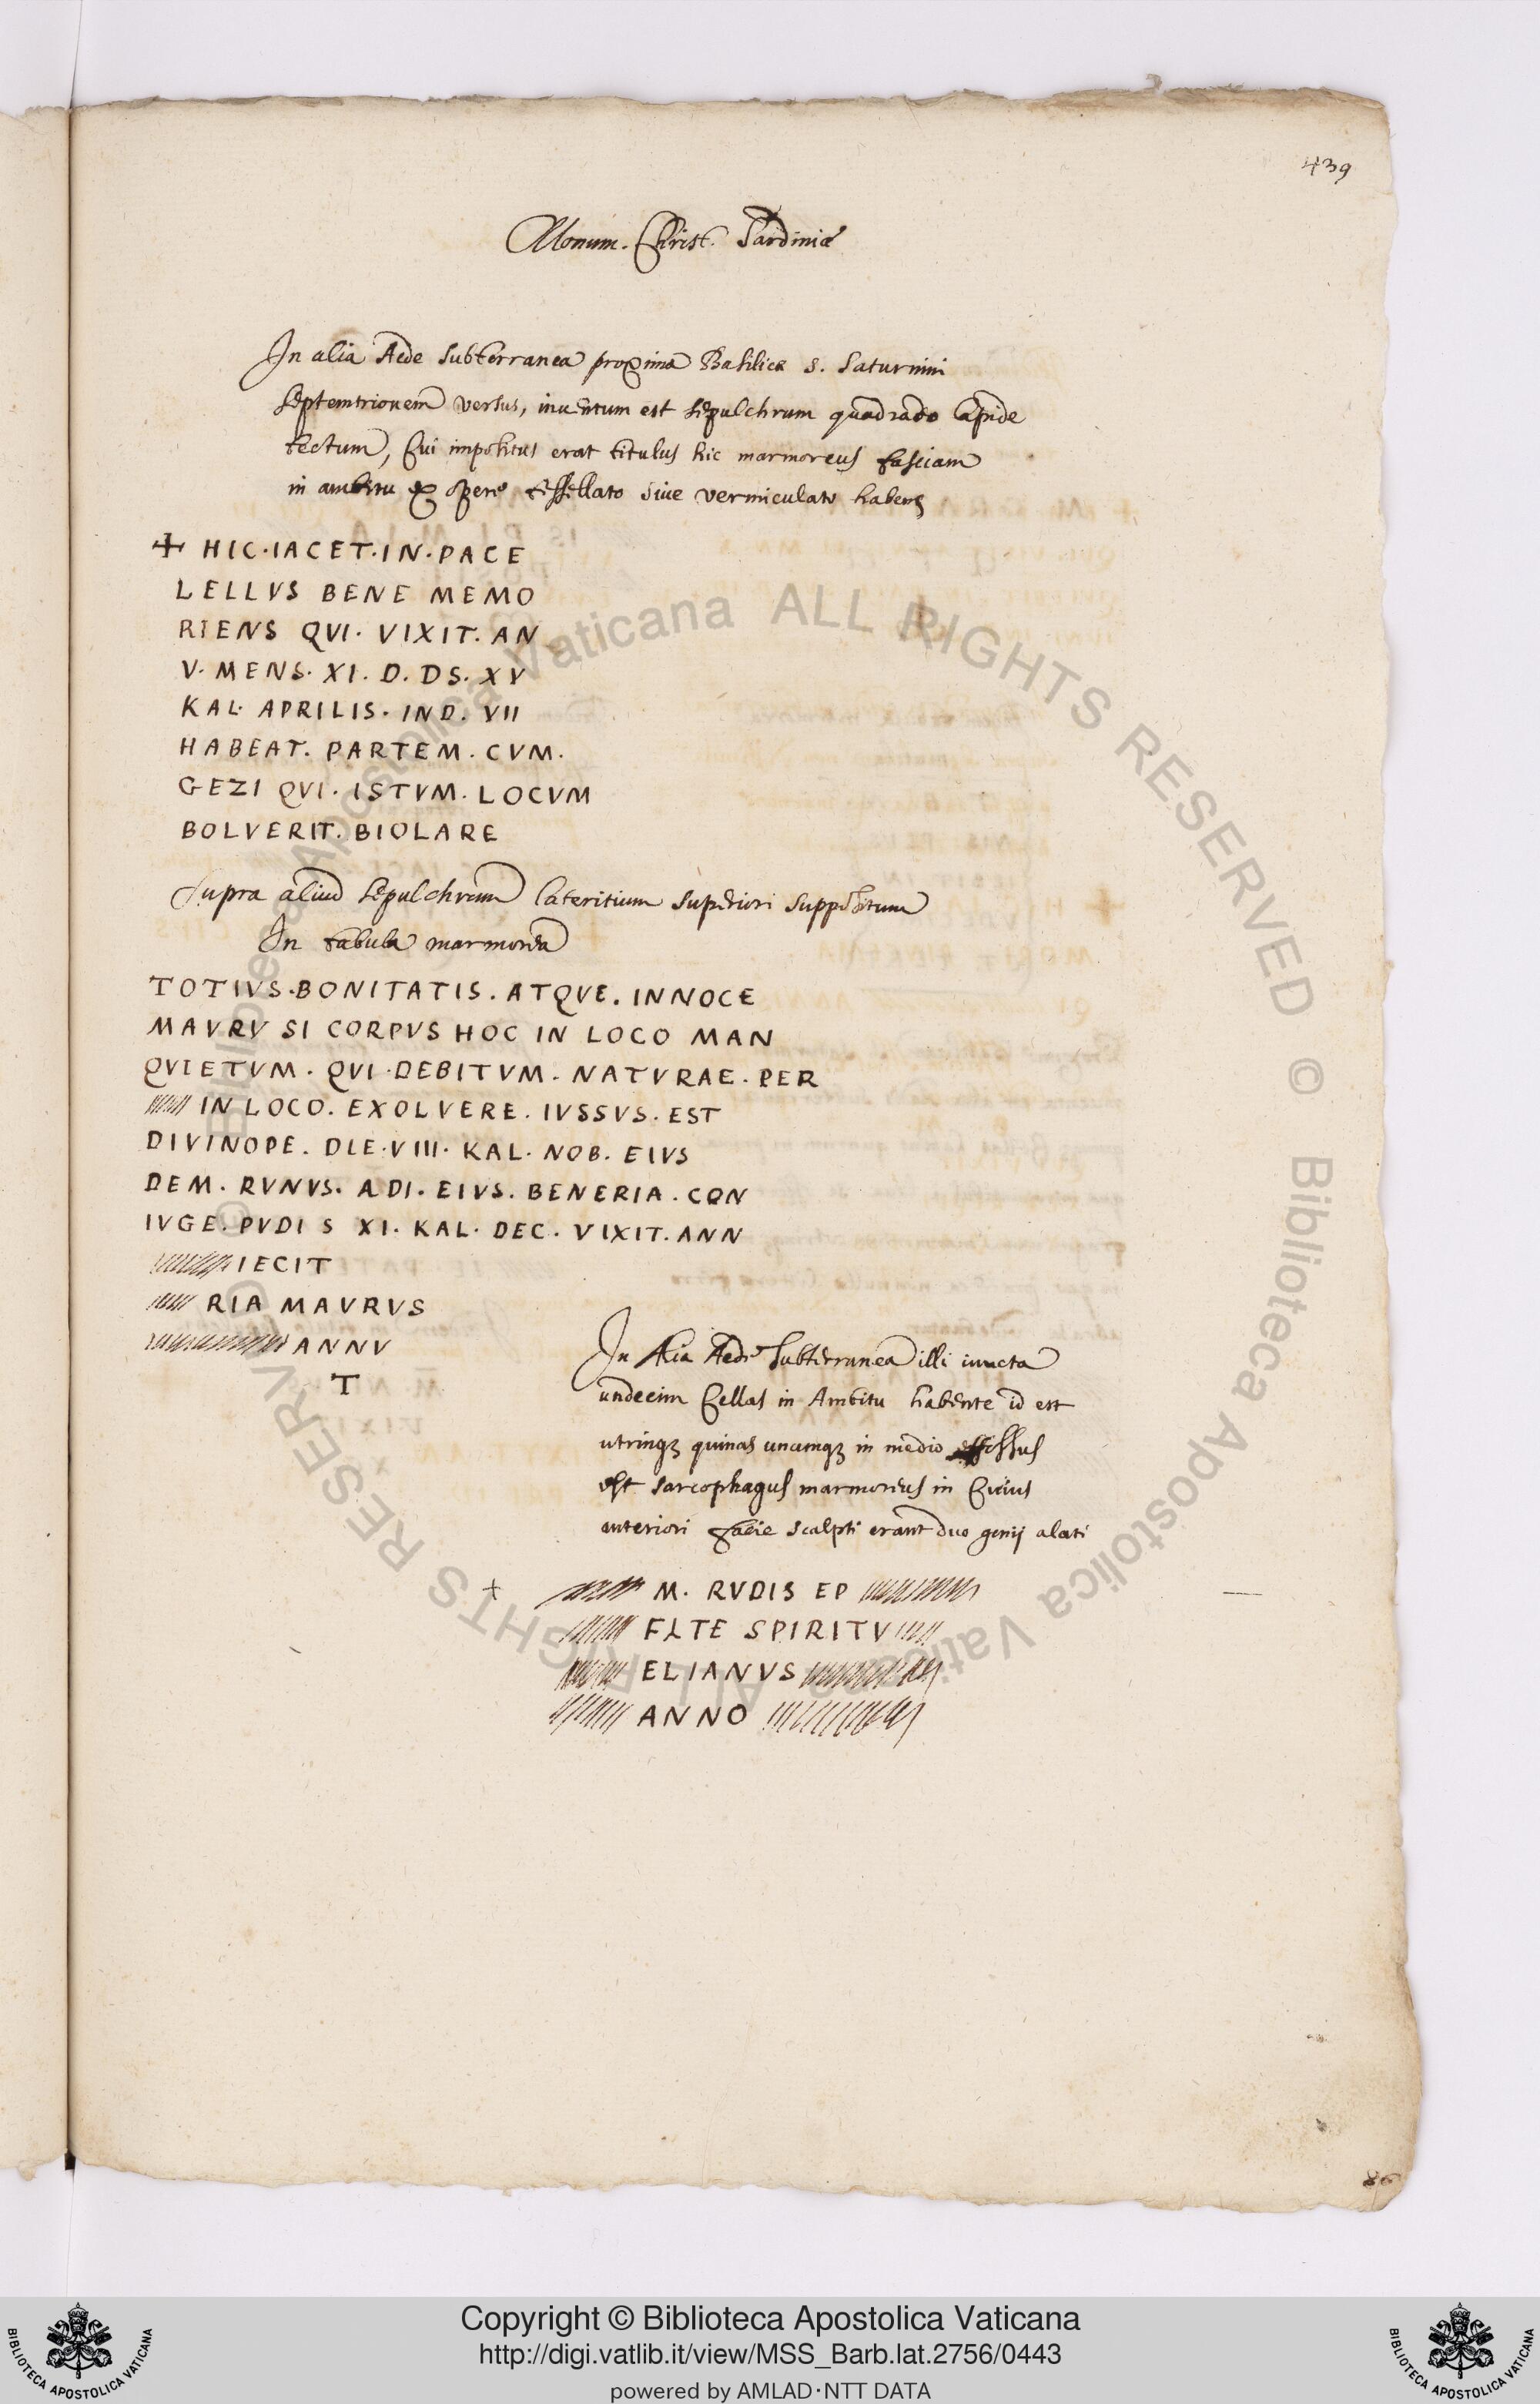 439
Monum. Christ. Sardiniæ
In alia Aede subterranea proxima Basilicæ S. Saturnini
septemtrionem versus, inventum est sepulchrum quadrado lapide
tectum, cui impositus erat titulus hic marmoreus fasciam
in ambitu ex opere tessellato sive vermiculato habens
+ HIC·IACET·IN·PACE
LELLVS BENE MEMO
RIENS QVI· VIXIT. AN
V· MENS· XI. D. DS. XV
KAL· APRILIS· IND. VII
HABEAT. PARTEM. CVM.
GEZI QVI. ISTVM. LOCVM
BOLVERIT. BIOLARE
Supra aliud sepulchrum lateritium superiori suppositum
In tabula marmorea
TOTIVS·BONITATIS. ATQVE. INNOCE
MAVRV SI CORPVS HOC IN LOCO MAN
QVIETVM. QVI·DEBITVM. NATVRAE. PER
IN LOCO. EXOLVERE. IVSSVS. EST
DIVINOPE. DIE·VIII· KAL. NOB. EIVS
DEM. RVNVS. ADI. EIVS. BENERIA. CON
IVGE. PVDI S XI. KAL. DEC. VIXIT. ANN
IECIT
RIA MAVRVS
ANNV
T
In Alia Aede subterranea illi iuncta
undecim cellas in Ambitu habente id est
utrinq3 quinas unamq3 in medio effossus
est sarcophagus marmoreus in cuius
anteriori facie scalpti erant duo genij alati
+ M. RVDIS EP
FLTE SPIRITV
ELIANVS
ANNO
86
Copyright © Biblioteca Apostolica Vaticana
http://digi.vatlib.it/view/MSS_Barb.lat.2756/0443
powered by AMLAD·NTT DATA
BIBLIOTECA APOSTOLICA VATICANA
BIBLIOTECA APOSTOLICA VATICANA
© Biblioteca Apostolica Vaticana ALL RIGHTS RESERVED © Biblioteca Apostolica Vaticana ALL RIGHTS RESERVED